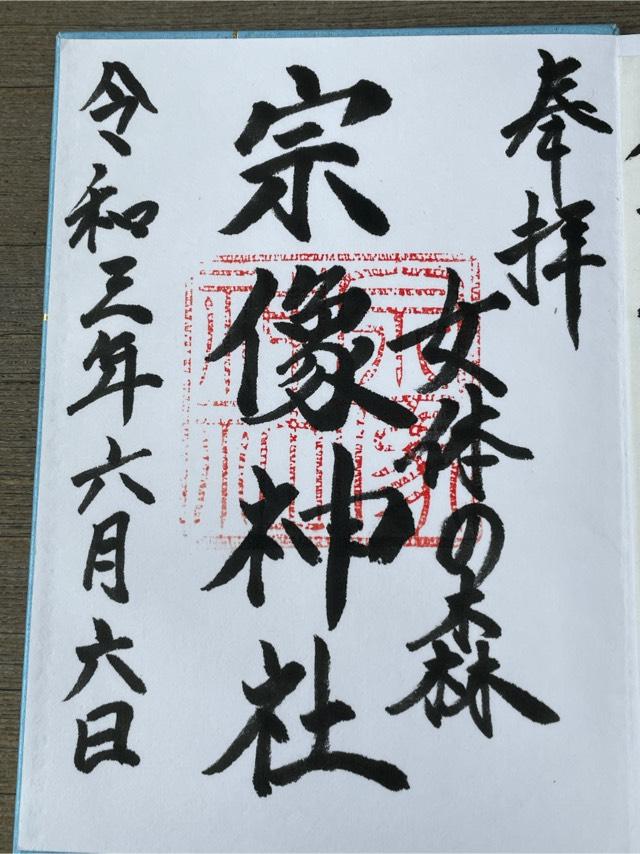 奉拝
女体の森
宗像神社
令和三年六月六日